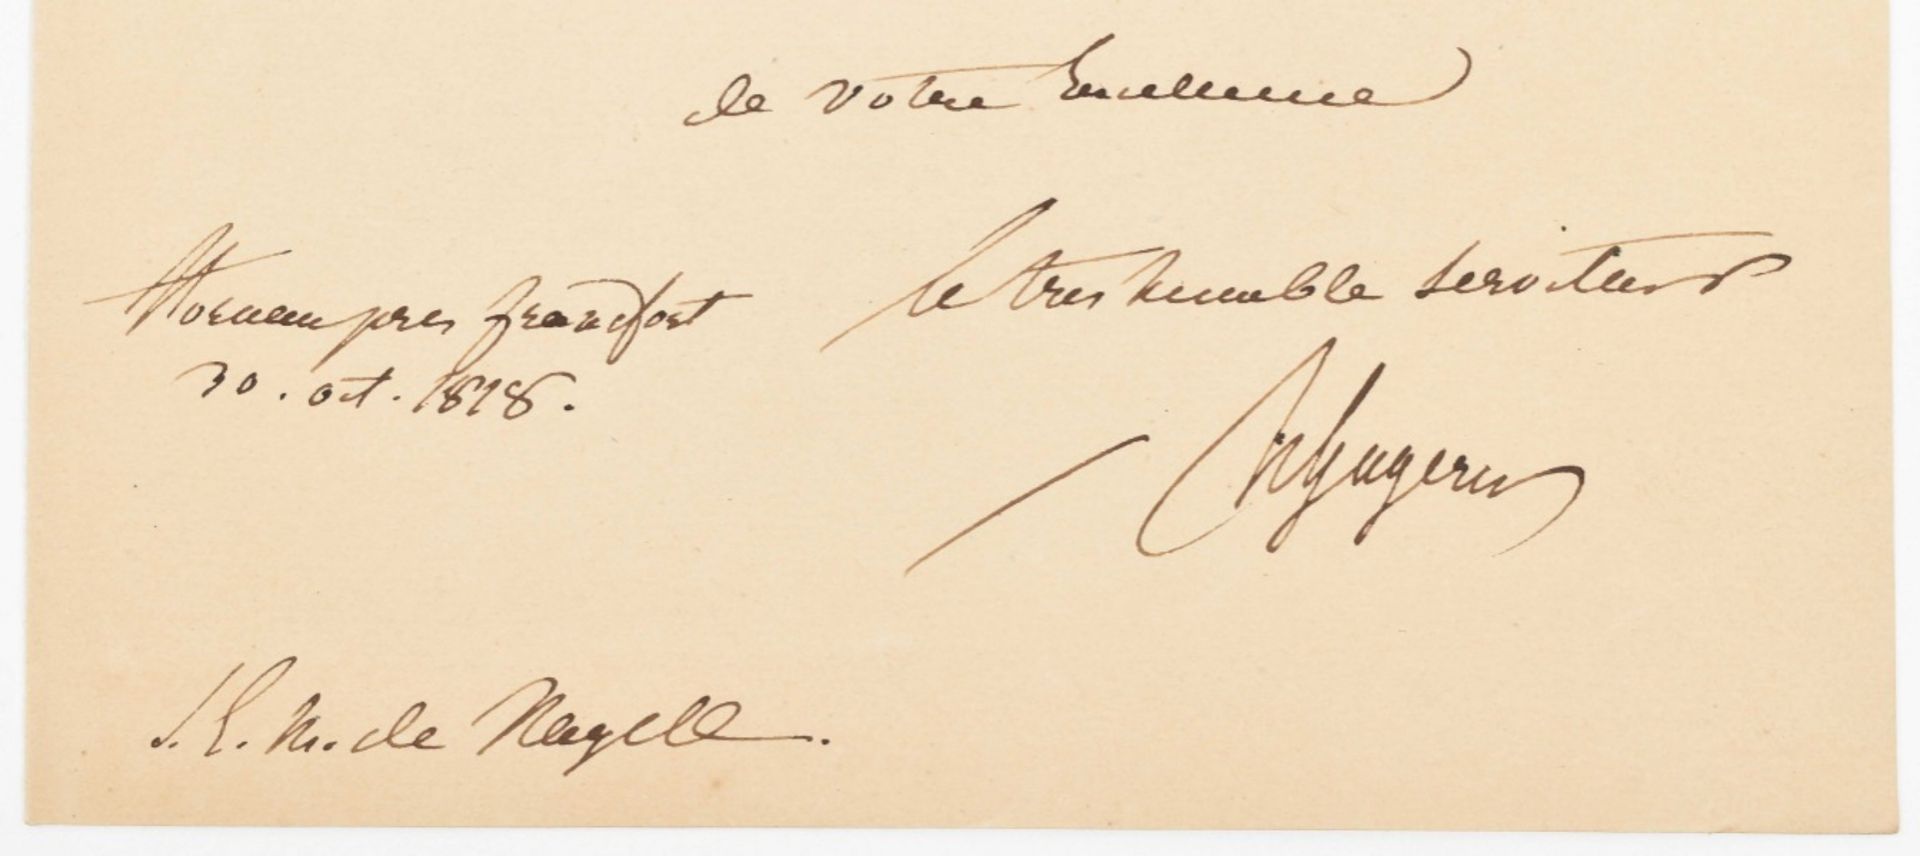 de votre Excellence
le tres humble serviteur
Hornau pres francfort
30. oct. 1818.
HGagern
S. E. M. de Nagell.